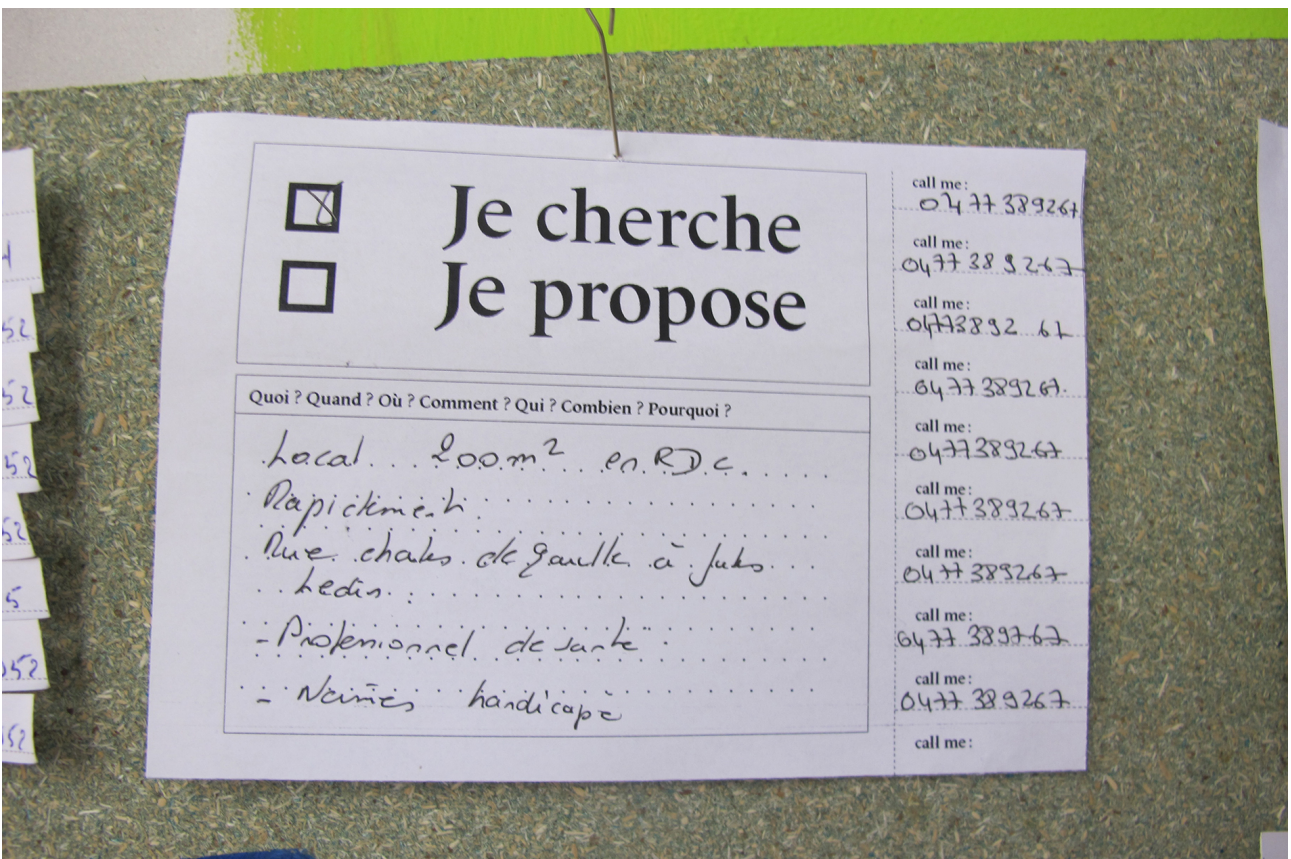 Je cherche
Je propose
Quoi ? Quand ? Où ? Comment ? Qui ? Combien ? Pourquoi ?
Local 200m² en RDC.
Rapidement
Rue chales de gaulle à
- Professionnel de santé
handicapé
call me :
0477389267
call me :
0477389267
call me :
0477389267
call me :
0477389267
call me :
0477389267
call me :
0477389267
call me :
0477389267
call me :
0477389767
call me :
0477389267
call me :
52
52
52
52
5
052
52